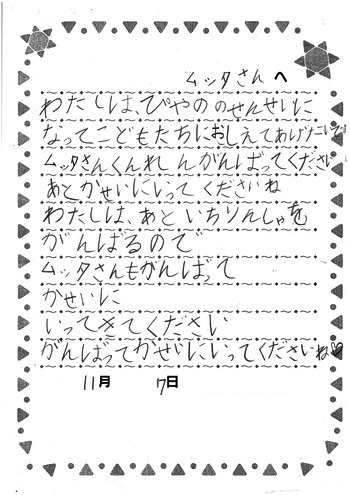 ムッタさんへ
わたしは、ぴやののせんせいに
なってこどもたちにおしえてあげたいです
ムッタさんくんれんがんばってください
あとかせいにいってくださいね
わたしは、あといちりんしゃを
がんばるので
ムッタさんもがんばって
かせいに
いってきてください
がんばってかせいにいってくださいね♡
11月 7日